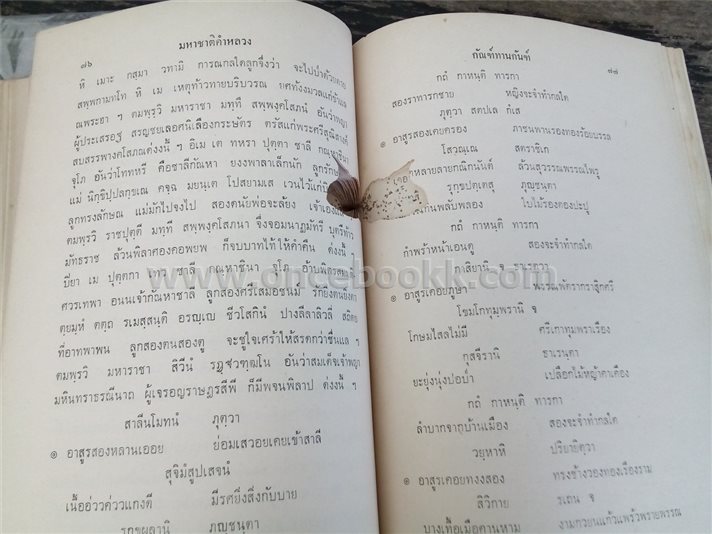 ๗๖
มหาชาติคำหลวง
หิ เมาะ กสฺมา วทามิ การณกลใดลูกจึ่งว่า จะไปป่าด้วย
สพฺพกามทโท หิ เม เหตุท้าวทายบริบวรณ ยศทั้งงมวลแก่ข้าแล
ณพระอา ฯ ตมพฺรวิ มหาราชา มทฺที สพฺพงฺคโสภนํ อันว่าพญา
ผู้ประเสรอฐ สรญชยเลอศนิเลืองกระษัตร ตรัสแก่พระศรีสุณิสางค์
สบสรรพางคโสภณดั่งงนี้ ฯ อิเม เต ทหรา ปุตฺตา ชาลี กณฺหาชินา
จุโภ อันว่าโททหรี คือชาลีกัณหา ยงงพาลาเล็กนัก ลูกรักษ
แม่ นิกฺขิปฺปลกฺขเณ คจฺฉ มยนฺเต โปสยามเส เวนไว้แก่
ลูกทรงลักษณ แม่มักไปจงไป สองดนัยพ่อจะล้ยง เจ้าเอง
ตมพฺรวิ ราชปุตฺตี มทฺที สพฺพงฺคโสภนา จึ่งจอมนาฏมัทรี บุตรีท้าว
มัทธราช ล้วนพิลาศองคอพยพ ก็จบบาทไท้ให้คำคืน ดั่งงนี้
ปิยา เม ปุตฺตกา เทว ชาลี กณฺหาชินา จุโภ
ศวรเทพา อนนเจ้ากัณหาชาลี ลูกสองศรีเสมอชนม์
ตฺยมฺหํ ตตฺถ รเมสฺสนฺติ อรญฺเญ ชีวโสกินํ ปางลีลาลิวไล่
ที่อาทพาพน ลูกสองตนสองตู จะชูใจเศร้าให้สรดกว่าชื่นแล ฯ
ตมพฺรวิ มหาราชา สิวีนํ รฏฺฐวฑฺฒโน อันว่าสมเด็จเจ้าพญา
มหินทราธรณีนาถ ผู้เจรอญราษฎรสีพี ก็มีพจนพิลาป ดั่งงนี้ ฯ
สาลีนโมทนํ ภุตฺวา
๏ อาสูรสองหลานเออย ย่อมเสวอยเคยเข้าสาลี
สุจิมํสูปเสจนํ
เนื้ออ่ววค่ววแกงดี มีรศยิ่งสิ่งกับบาย
รุกฺขผลานิ ภุญฺชนฺตา
กัณฑ์ทานกัณฑ์
๗๗
กถํ กาหนฺติ ทารกา
สองราทารกชาย หญิงจะจำทำกลใด
ภุตฺวา สตปเล กํเส
๏ อาสูรสองเคยครอง ภาชนพานรองทองร้อยบรรล
โสวณฺเณ สตราชิเก
หลายลายกณิกนันต์ ล้วนสุวรรณพรรณไพรู
รุกฺขปตฺเตสุ ภุญฺชนฺตา
พลับพลอง ใบไม้รองตองปะปู
กถํ กาหนฺติ ทารกา
กำพร้าหน้าเอนดู สองจะจำทำกลใด
กาสิยานิ จ ธาเรตฺวา
๏ อาสูรเคอยภูษา พรรณพัตรากราสุิกศรี
โขมโกทุมฺพรานิ จ
โกษมไสลไม่มี ศรีเกาทุมพราเรือง
กุสจีรานิ ธาเรนฺตา
ยะยุ่งนุ่งปอป่ำ เปลือกไม้หญ้าคาเคือง
กถํ กาหนฺติ ทารกา
ลำบากจากบ้านเมือง สองจะจำทำกลใด
วยฺหาหิ ปริยายิตฺวา
๏ อาสูรเคอยทงงสอง ทรงช้างวองทองเรืองราม
สิวิกาย รเถน จ
บางเทื้อเมื่อคานหาม งามกวยนแก้วแพร้วพรายพรรณ
www.oncebookk.com